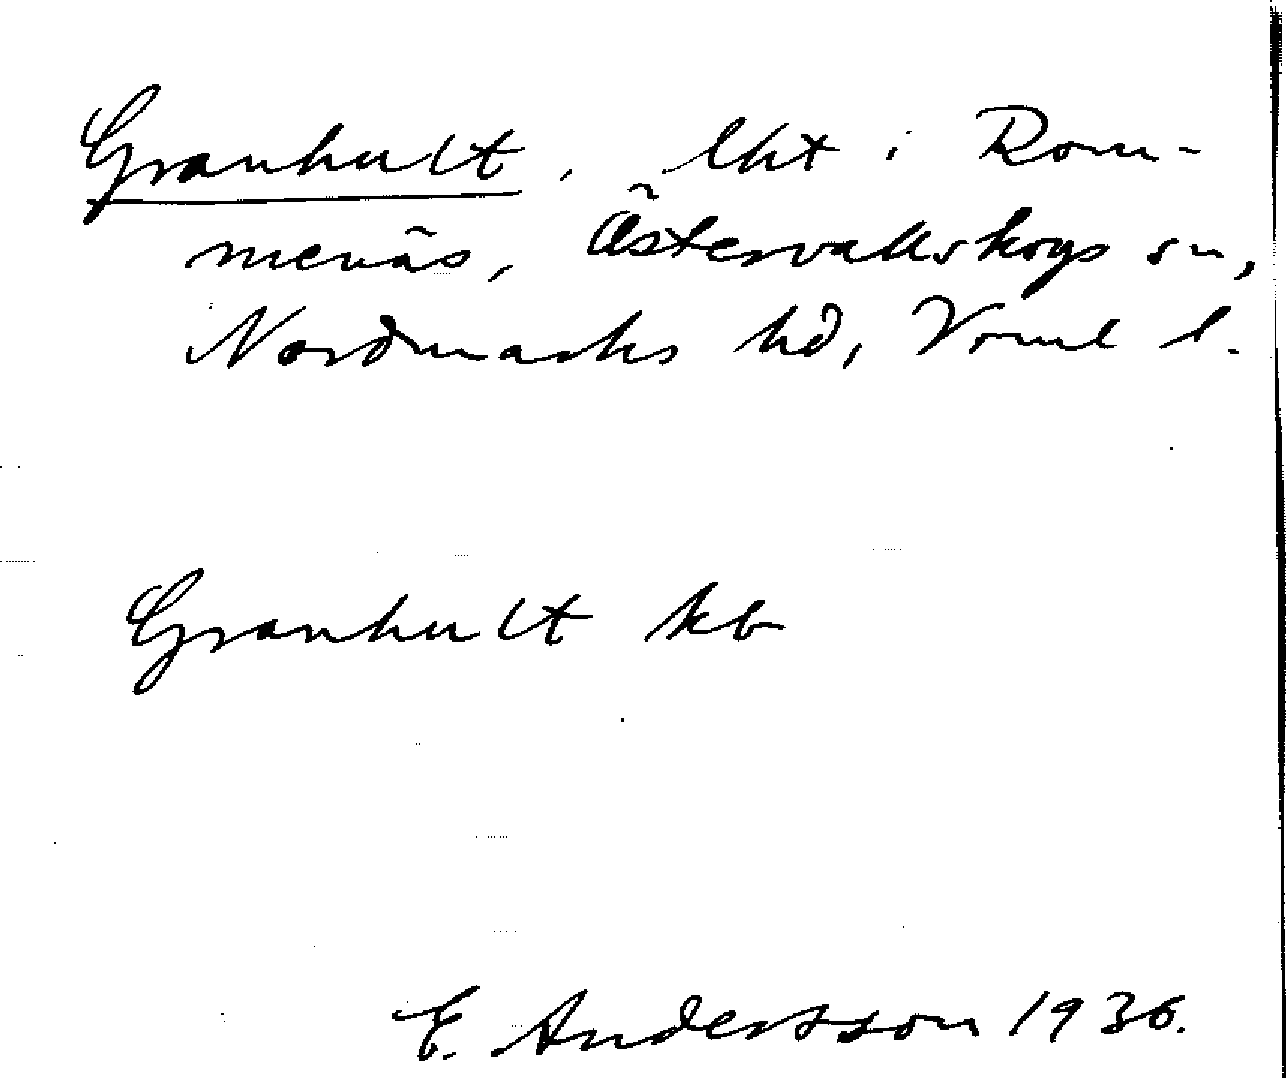 Granhult, lht i Rom-
menäs, Östervallskogs sn,
Nordmarks hd, Vrml l.
Granhult kb
E. Andersson 1936.